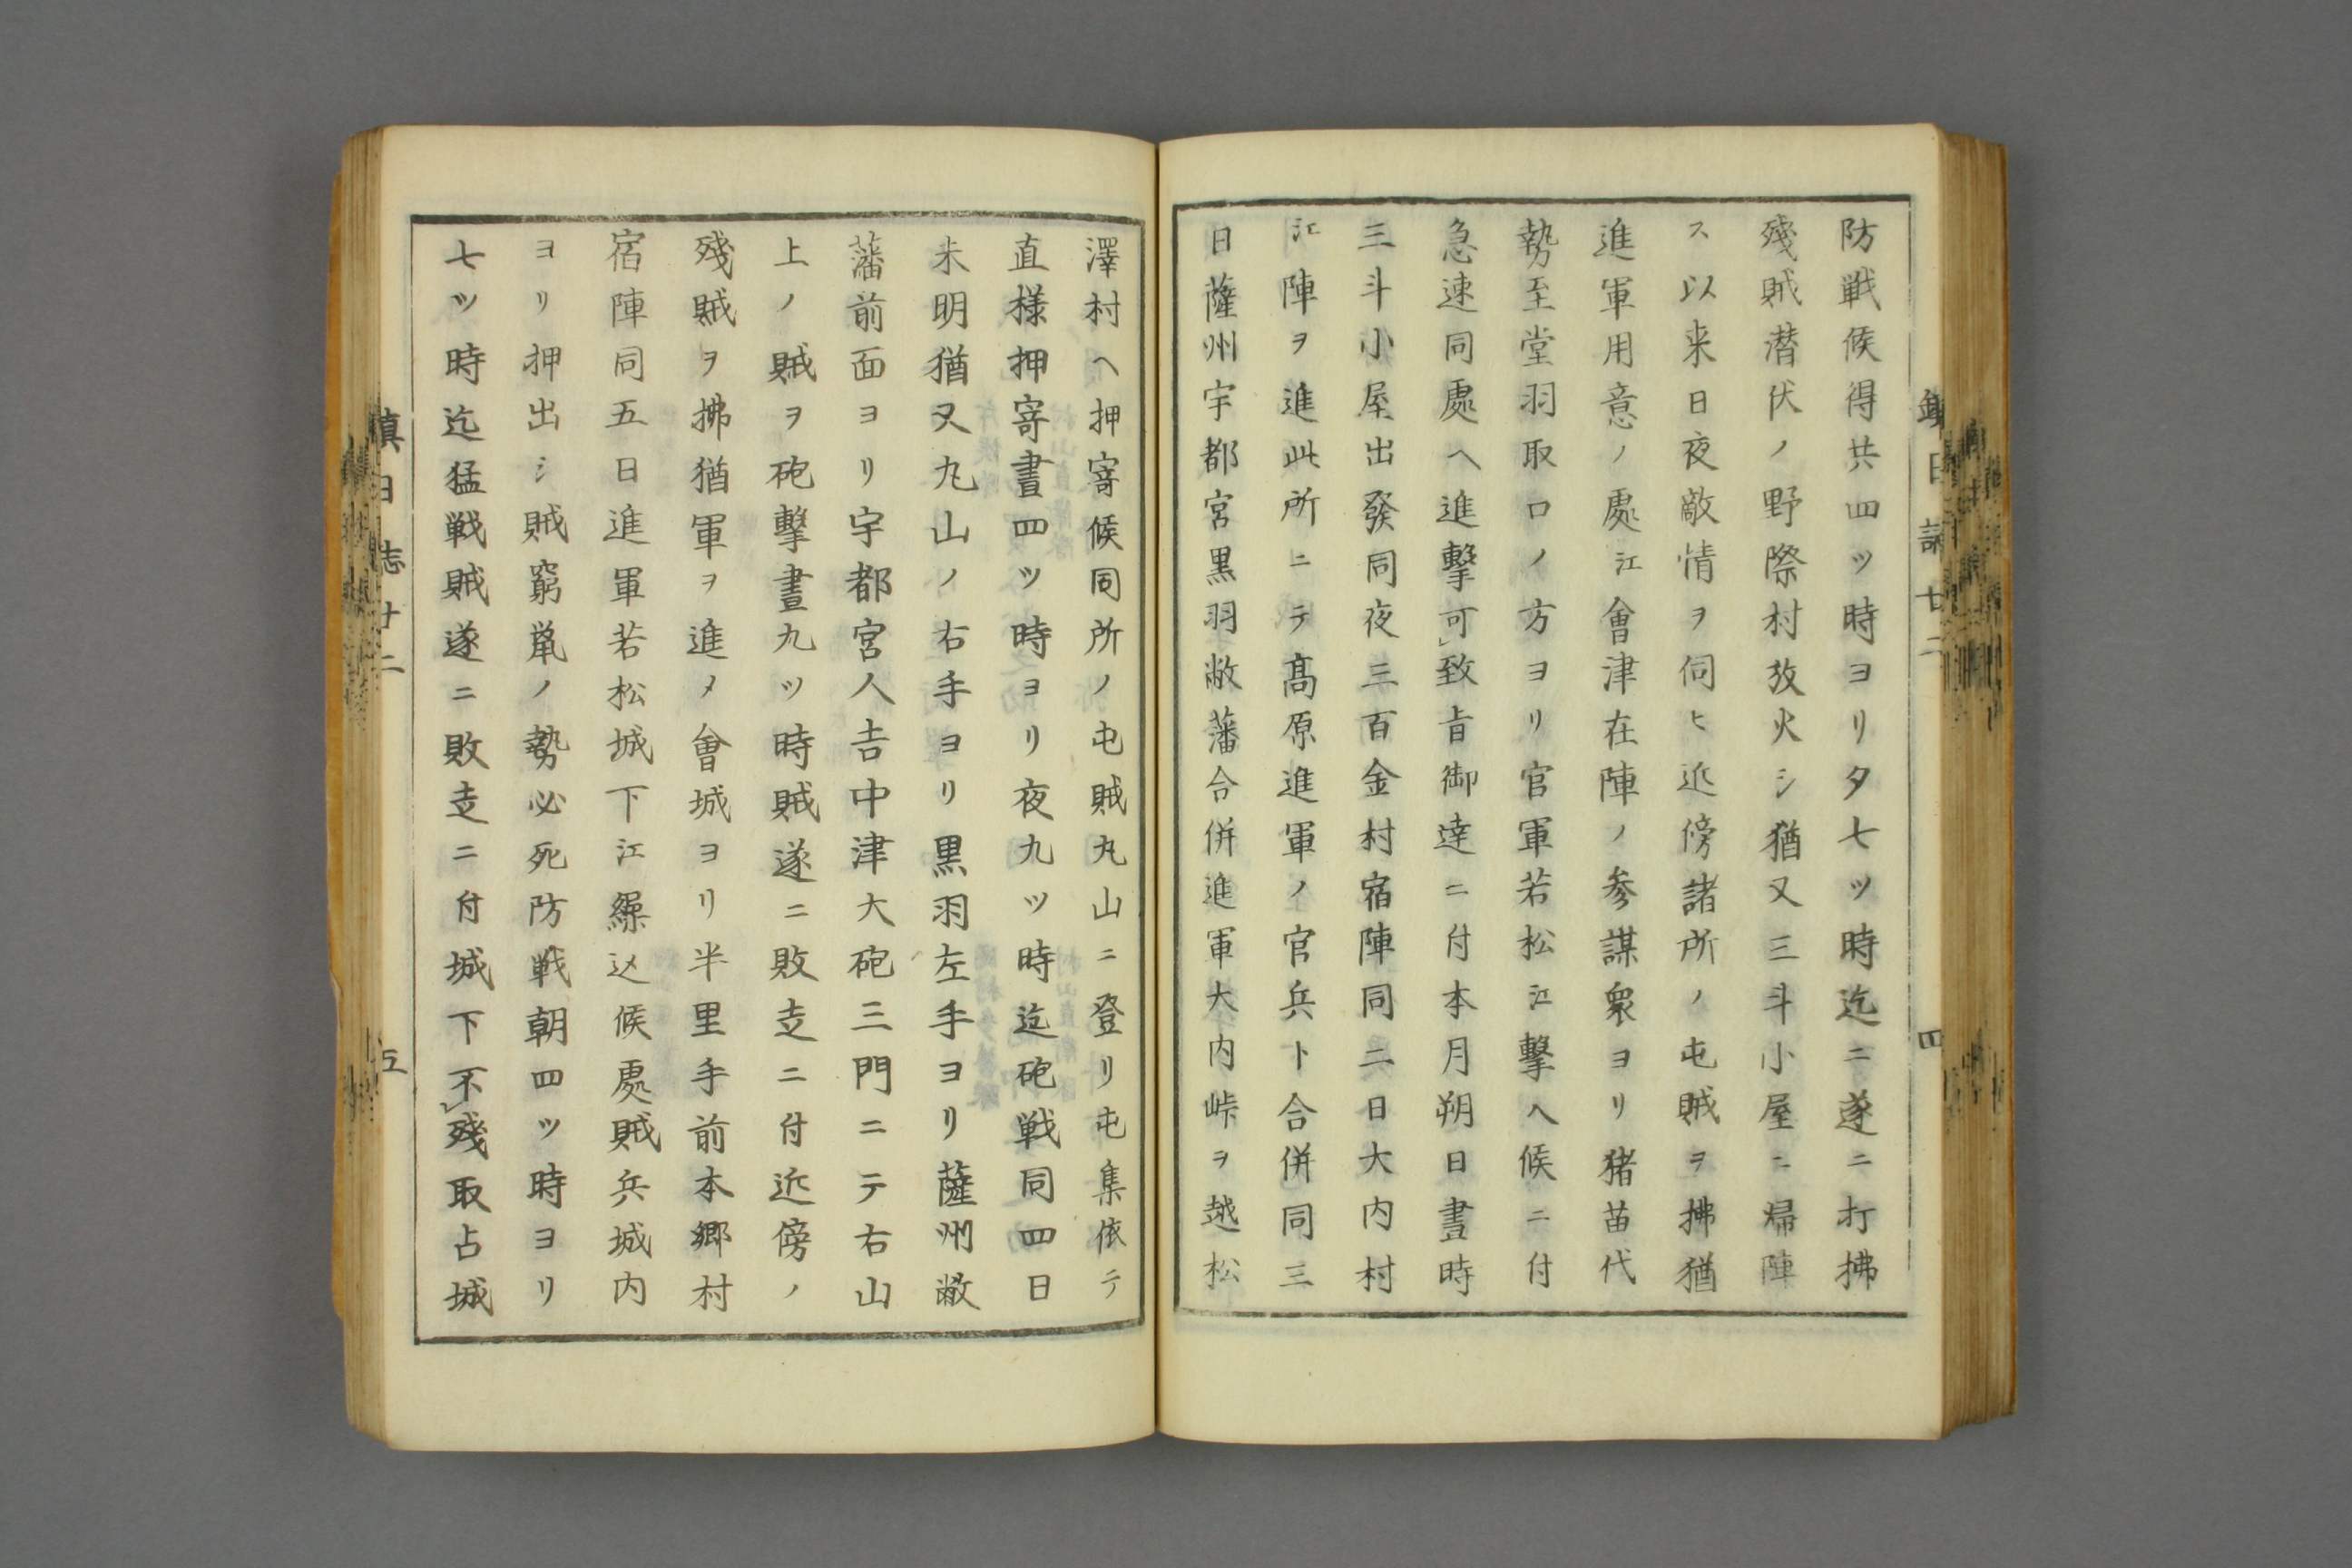 防戦候得共四ッ時ヨリタ七ッ時迄ニ遂ニ打拂
殘賊潜伏ノ野際村放火シ猶又三斗小屋ニ帰陣
ス以来日夜敵情ヲ伺ヒ近傍諸所ノ屯賊ヲ拂猶
進軍用意ノ處江會津在陣ノ参謀衆ヨリ猪苗代
勢至堂羽取口ノ方ヨリ官軍若松江撃入候ニ付
急速同處ヘ進撃可致旨御達ニ付本月朔日晝時
三斗小屋出發同夜三百金村宿陣同二日大内村
江陣ヲ進此所ニテ髙原進軍ノ官兵ト合併同三
日薩州宇都宮黒羽敝藩合併進軍大内峠ヲ越松
澤村ヘ押寄候同所ノ屯賊丸山ニ登リ屯集依テ
直様押寄晝四ッ時ヨリ夜九ッ時迄砲戦同四日
未明猶又丸山ノ右手ヨリ黒羽左手ヨリ薩州敝
藩前面ヨリ宇都宮人吉中津大砲三門ニテ右山
上ノ賊ヲ砲撃晝九ッ時賊遂ニ敗走ニ付近傍ノ
殘賊ヲ拂猶軍ヲ進メ會城ヨリ半里手前本郷村
宿陣同五日進軍若松城下江繰込候處賊兵城内
ヨリ押出シ賊窮鼠ノ勢必死防戦朝四ッ時ヨリ
七ッ時迄猛戦賊遂ニ敗走ニ付城下不殘取占城
鎮日誌廿二
四
鎮日誌廿二
五